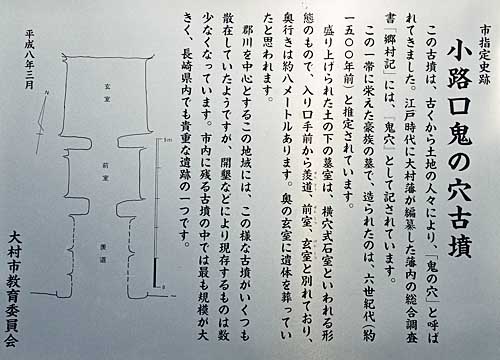 市指定史跡
小路口鬼の穴古墳
この古墳は、古くから土地の人々により、「鬼の穴」と呼ば
れてきました。江戸時代に大村藩が編纂した藩内の総合調査
書「郷村記」には、「鬼穴」として記されています。
この一帯に栄えた豪族の墓で、造られたのは、六世紀代(約
一五〇〇年前)と推定されています。
盛り上げられた土の下の墓室は、横穴式石室といわれる形
態のもので、入り口手前から羨道、前室、玄室と別れており、
奥行きは約八メートルあります。奥の玄室に遺体を葬ってい
たと思われます。
郡川を中心とするこの地域には、この様な古墳がいくつも
散在していたようですが、開墾などにより現存するものは数
少なくなっています。市内に残る古墳の中では最も規模が大
きく、長崎県内でも貴重な遺跡の一つです。
平成八年三月
大村市教育委員会
玄室
前室
羨道
N
5m
0